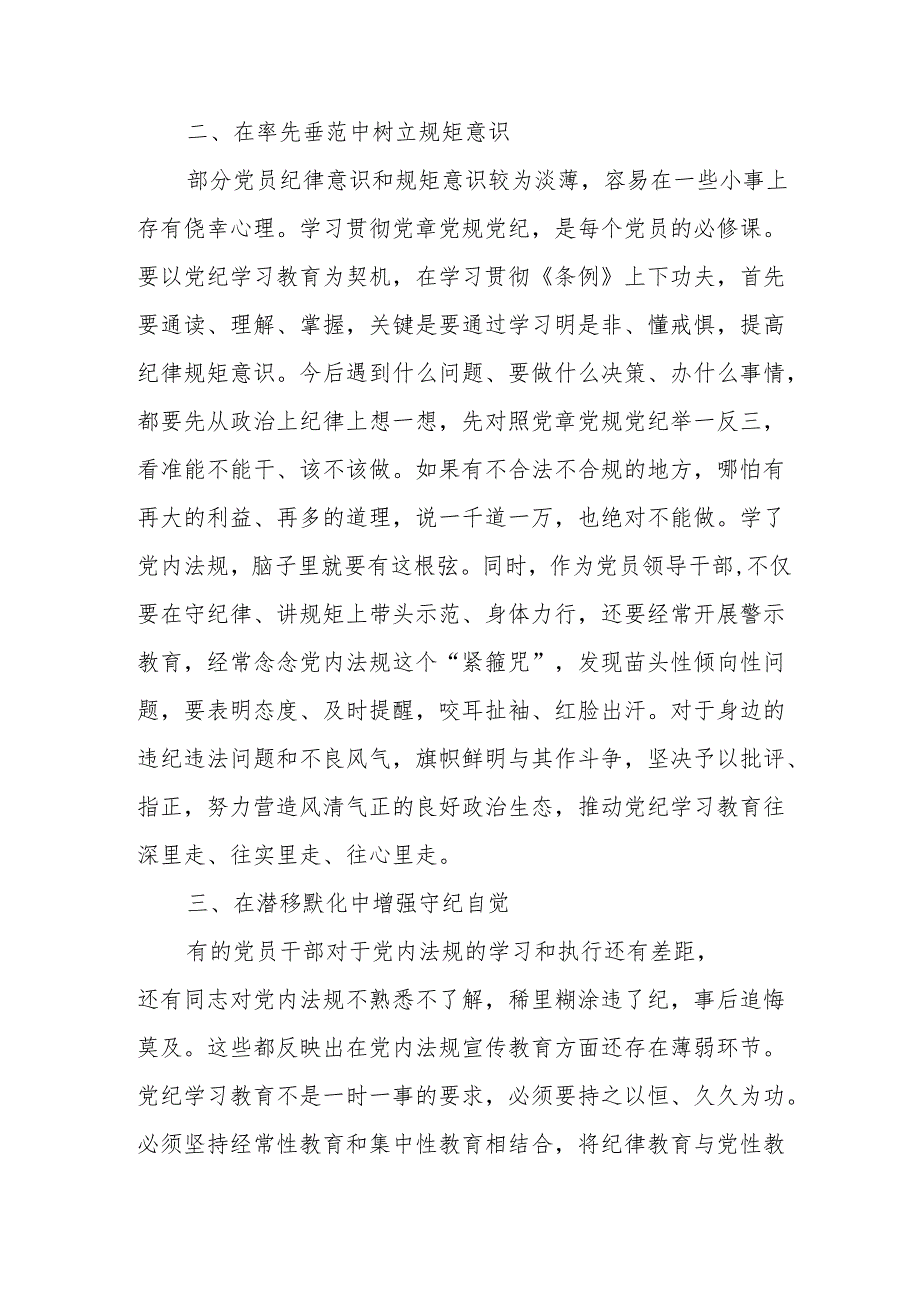 二、在率先垂范中树立规矩意识
部分党员纪律意识和规矩意识较为淡薄，容易在一些小事上
存有侥幸心理。学习贯彻党章党规党纪，是每个党员的必修课。
要以党纪学习教育为契机，在学习贯彻《条例》上下功夫，首先
要通读、理解、掌握，关键是要通过学习明是非、懂戒惧，提高
纪律规矩意识。今后遇到什么问题、要做什么决策、办什么事情，
都要先从政治上纪律上想一想，先对照党章党规党纪举一反三，
看准能不能干、该不该做。如果有不合法不合规的地方，哪怕有
再大的利益、再多的道理，说一千道一万，也绝对不能做。学了
党内法规，脑子里就要有这根弦。同时，作为党员领导干部,不仅
要在守纪律、讲规矩上带头示范、身体力行，还要经常开展警示
教育，经常念念党内法规这个“紧箍咒”，发现苗头性倾向性问
题，要表明态度、及时提醒，咬耳扯袖、红脸出汗。对于身边的
违纪违法问题和不良风气，旗帜鲜明与其作斗争，坚决予以批评、
指正，努力营造风清气正的良好政治生态，推动党纪学习教育往
深里走、往实里走、往心里走。
三、在潜移默化中增强守纪自觉
有的党员干部对于党内法规的学习和执行还有差距，
还有同志对党内法规不熟悉不了解，稀里糊涂违了纪，事后追悔
莫及。这些都反映出在党内法规宣传教育方面还存在薄弱环节。
党纪学习教育不是一时一事的要求，必须要持之以恒、久久为功。
必须坚持经常性教育和集中性教育相结合，将纪律教育与党性教